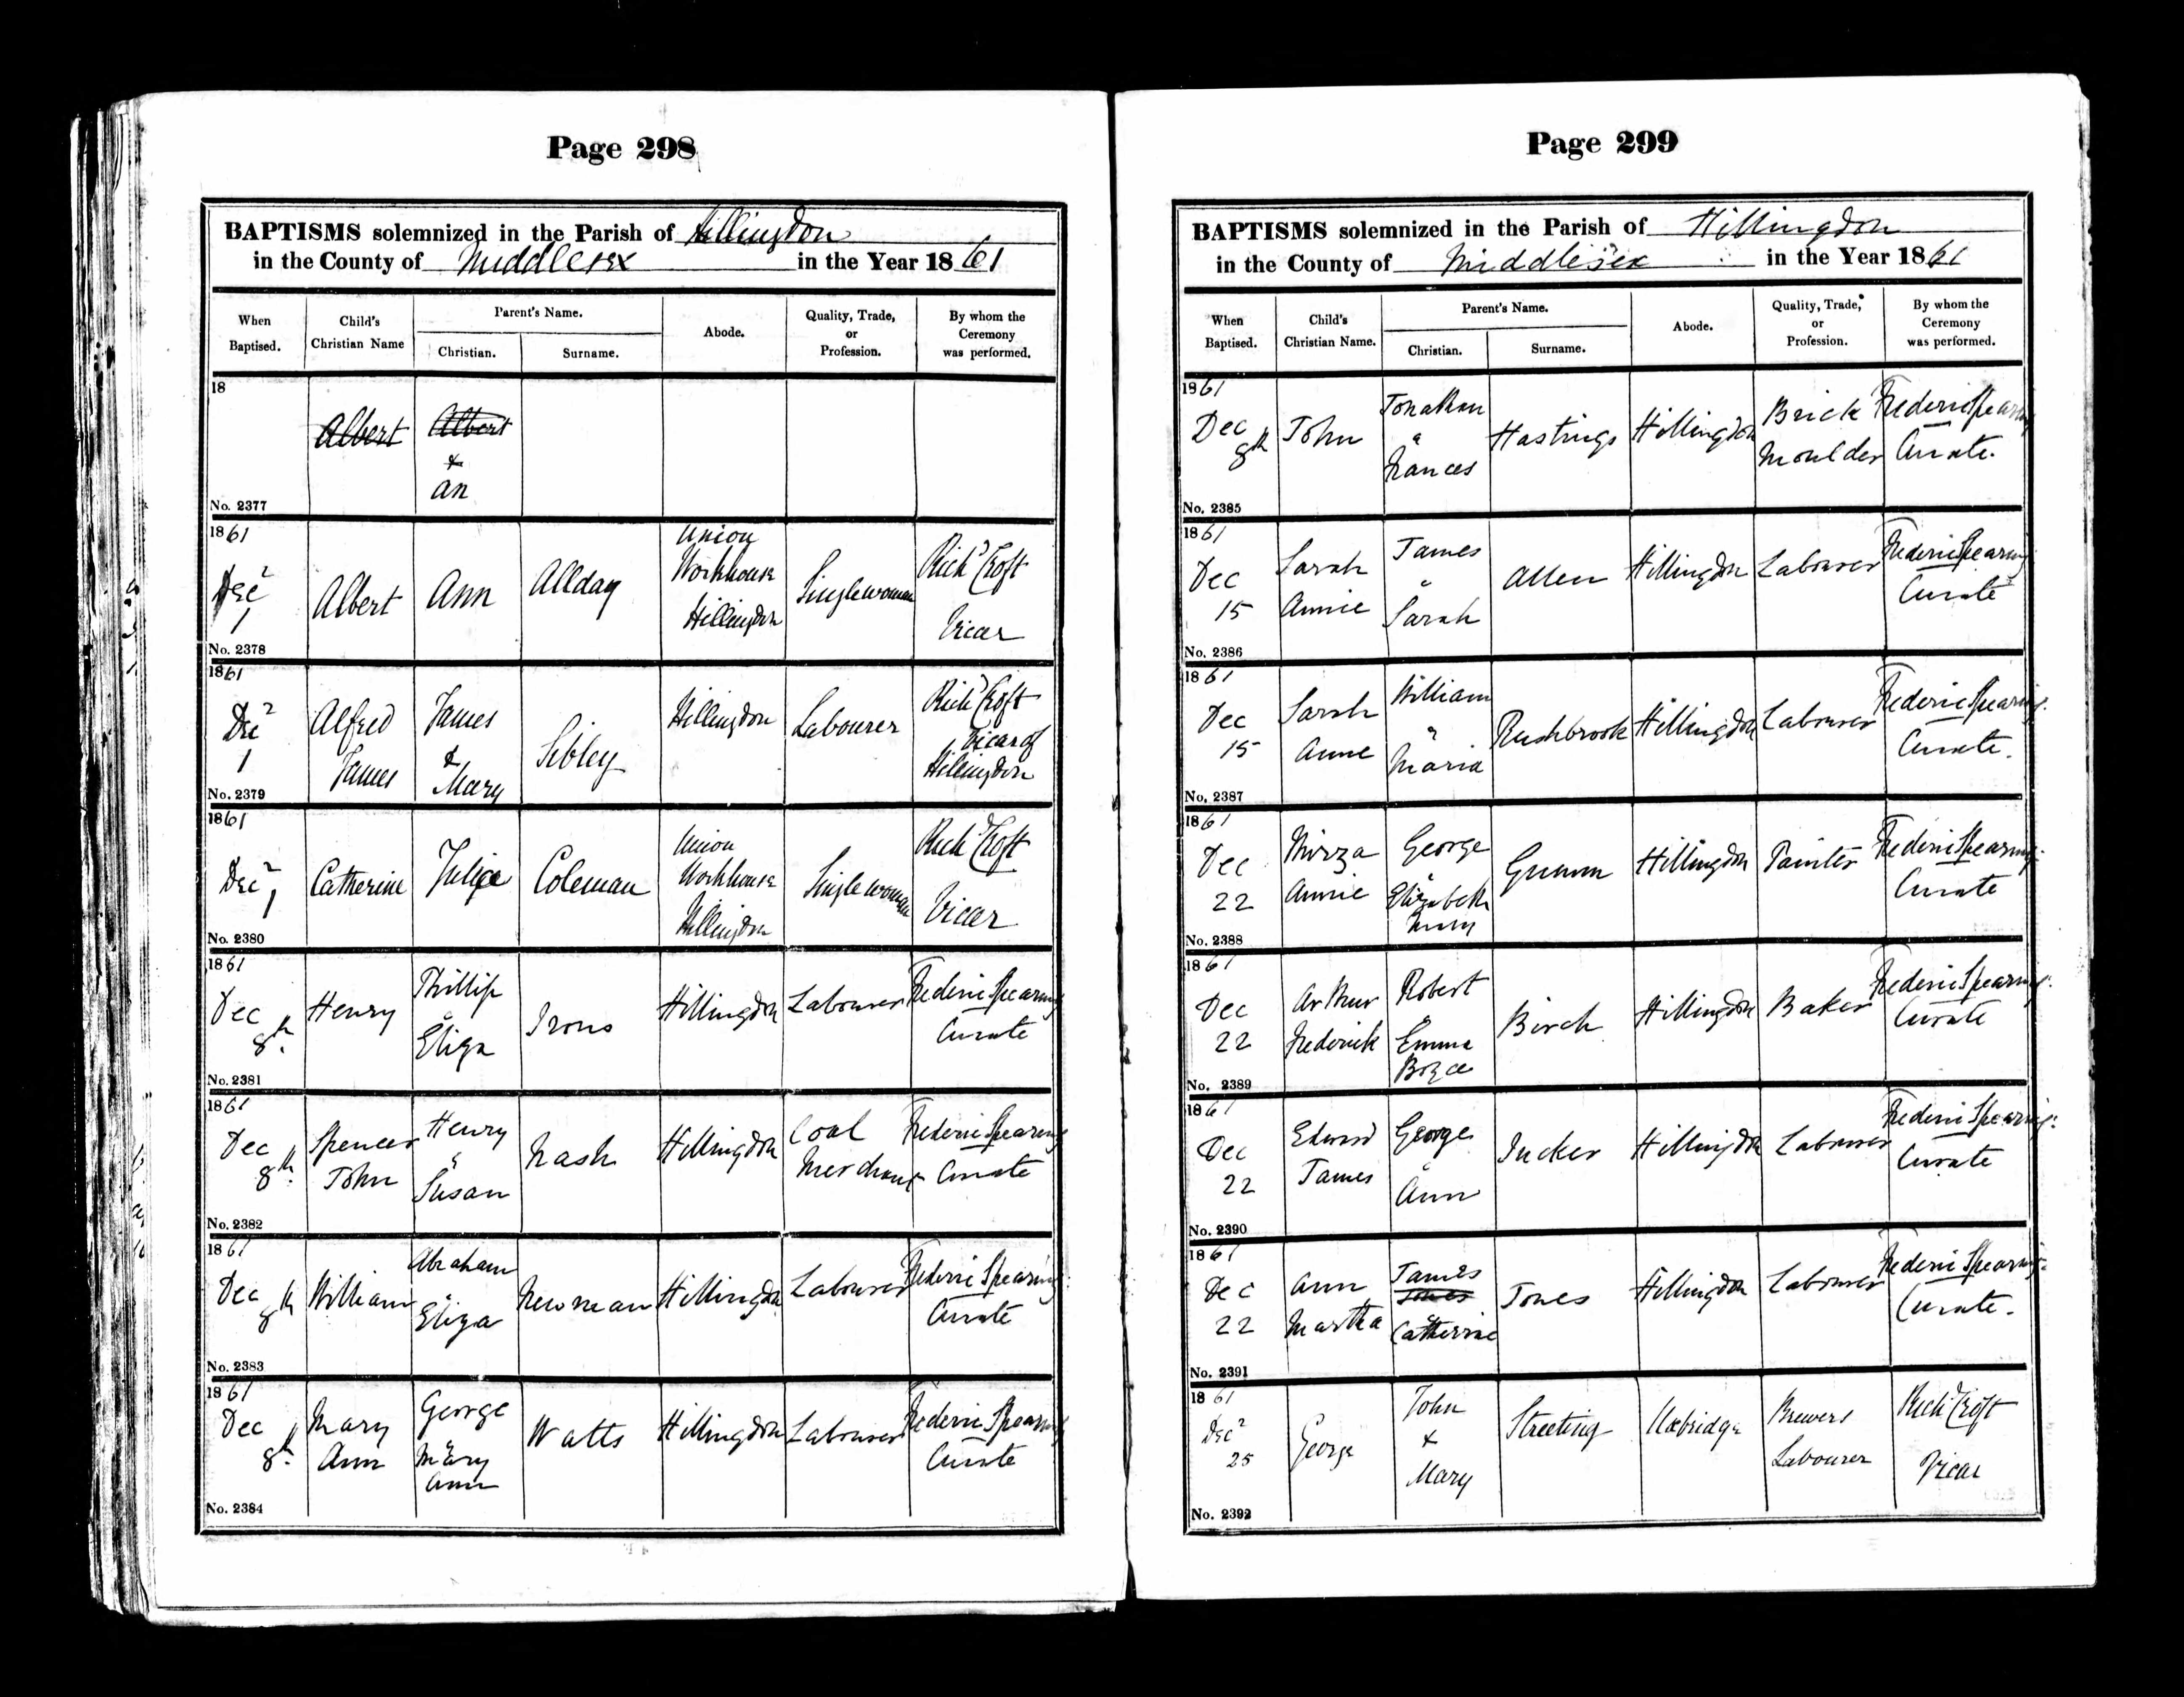 Page 298
BAPTISMS solemnized in the Parish of Hillingdon
in the County of Middlesex in the Year 1861
When Baptised.
Child's Christian Name
Parent's Name.
Christian.
Surname.
Abode.
Quality, Trade, or Profession.
By whom the Ceremony was performed.
18
Albert
Albert
&
an
No. 2377
1861
Decr
1
Albert
Ann
Allday
Union
Workhouse
Hillingdon
Singlewoman
Richd Croft
Vicar
No. 2378
1861
Decr
1
Alfred
James
James
&
Mary
Sibley
Hillingdon
Labourer
Richd Croft
Vicar of
Hillingdon
No. 2379
1861
Decr
1
Catherine
Coleman
Union
Workhouse
Hillingdon
Single woman
Richd Croft
Vicar
No. 2380
1861
Dec
8th
Henry
Phillip
&
Eliza
Irons
Hillingdon
Labourer
Frederic Spearing
Curate
No. 2381
1861
Dec
8th
Spencer
John
Henry
&
Susan
Nash
Hillingdon
Coal
Merchant
Frederic Spearing
Curate
No. 2382
1861
Dec
8th
William
Abraham
&
Eliza
Newman
Hillingdon
Labourer
Frederic Spearing
Curate
No. 2383
1861
Dec
8th
Mary
Ann
George
&
Mary
Ann
Watts
Hillingdon
Labourer
Frederic Spearing
Curate
No. 2384
Page 299
BAPTISMS solemnized in the Parish of Hillingdon
in the County of Middlesex in the Year 1861
When Baptised.
Child's Christian Name.
Parent's Name.
Christian.
Surname.
Abode.
Quality, Trade, or Profession.
By whom the Ceremony was performed.
1861
Dec
8th
John
Jonathan
&
Frances
Hastings
Hillingdon
Brick
Moulder
Frederic Spearing
Curate.
No. 2385
1861
Dec
15
Sarah
Annie
James
&
Sarah
Allen
Hillingdon
Labourer
Frederic Spearing
Curate
No. 2386
1861
Dec
15
Sarah
Anne
William
&
Maria
Rushbrook
Hillingdon
Labourer
Frederic Spearing.
Curate.
No. 2387
1861
Dec
22
Mirza
Annie
George
&
Elizabeth
Mary
Hillingdon
Painter
Frederic Spearing.
Curate
No. 2388
1861
Dec
22
Arthur
Frederick
Robert
&
Emma
Birch
Hillingdon
Baker
Frederic Spearing.
Curate
No. 2389
1861
Dec
22
Edward
James
George
&
Ann
Tucker
Hillingdon
Labourer
Frederic Spearing.
Curate
No. 2390
1861
Dec
22
Ann
Martha
James
Jones
&
Catherine
Jones
Hillingdon
Labourer
Frederic Spearing.
Curate.
No. 2391
1861
Decr
25
George
John
&
Mary
Streeting
Uxbridge
Brewers
Labourer
Richd Croft
Vicar
No. 2392